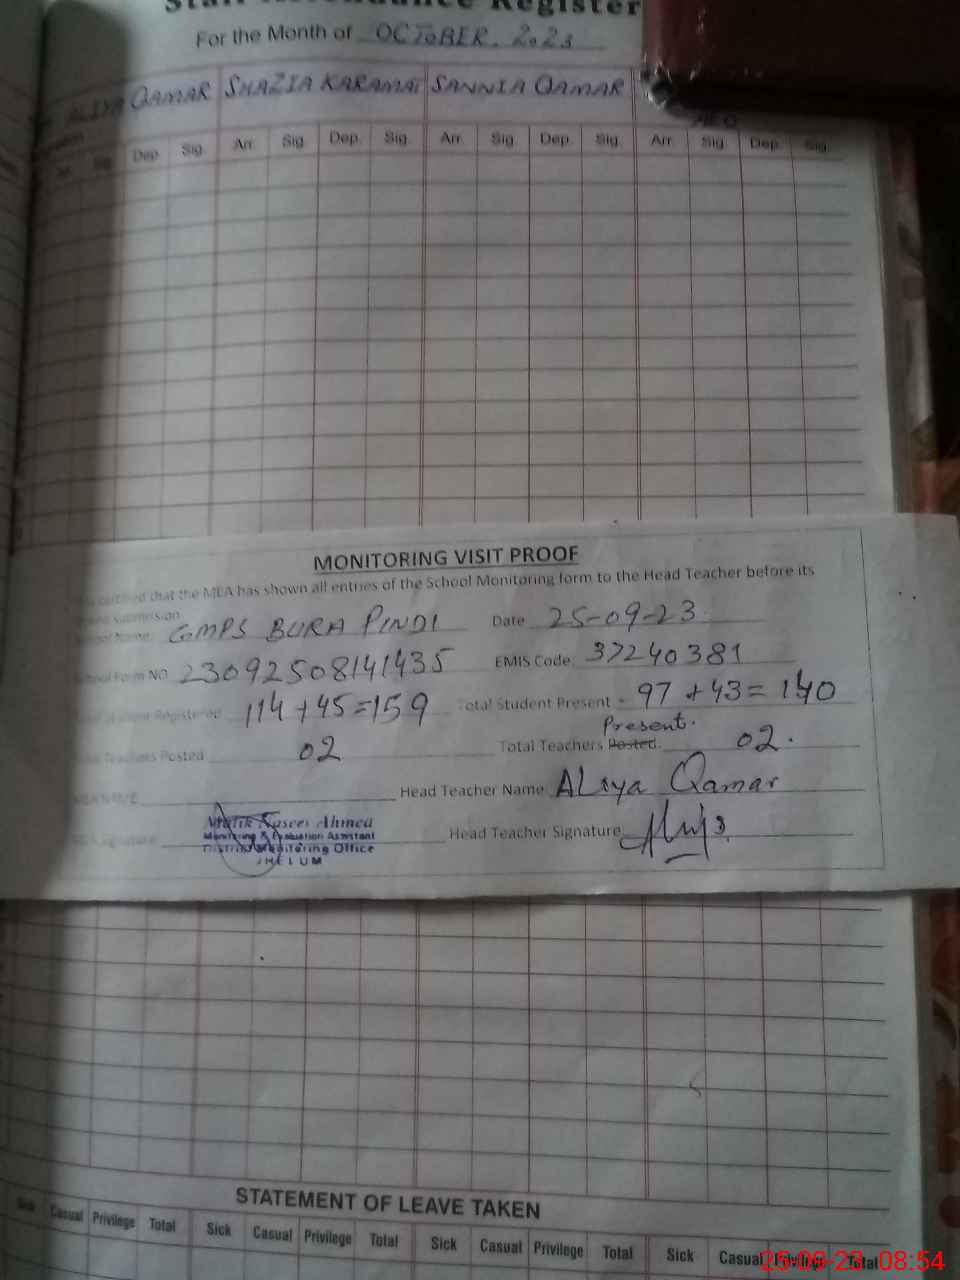 Staff Attendance Register
For the Month of OCTOBER, 2023
ALIYA QAMAR SHAZIA KARAMAT SANNIA QAMAR
AEO
Dep. Sig. Arr. Sig. Dep. Sig. Arr. Sig. Dep. Sig. Arr. Sig. Dep. Sig.
MONITORING VISIT PROOF
certified that the MEA has shown all entries of the School Monitoring form to the Head Teacher before its
submission
School Name GMPS BURA PINDI Date 25-09-23
School Form NO 23092508141435 EMIS Code 37240381
Student Registered 114+45=159 Total Student Present 97+43=140
Present.
Teachers Posted 02 Total Teachers Posted. 02.
Head Teacher Name ALiya Qamar
Malik Naseer Ahmed
Monitoring & Evaluation Assistant
District Monitoring Office
JHELUM
Head Teacher Signature
STATEMENT OF LEAVE TAKEN
Sick Casual Privilege Total Sick Casual Privilege Total Sick Casual Privilege Total Sick Casual Privilege Total
25-09-23 08:54